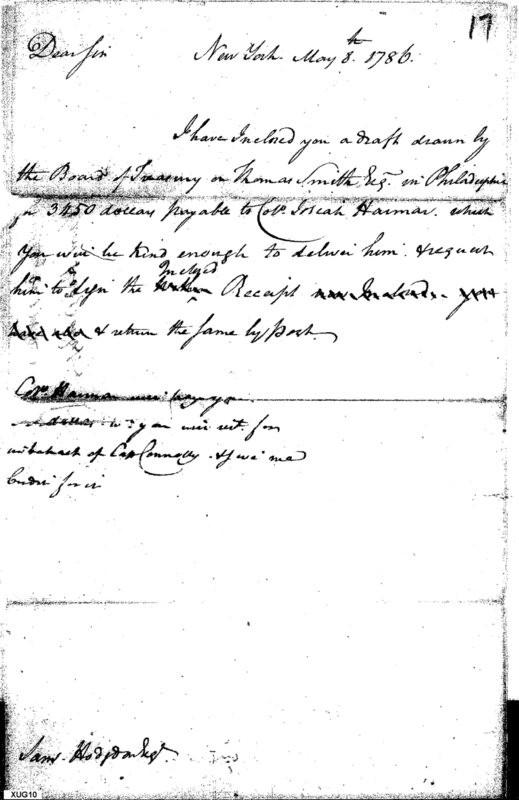 17
Dear Sir New York May 8th 1786.
I have Inclosed you a draft drawn by
the Board of Treasury on Thomas Smith Esqr. in Philadelphia
for 3450 dollars payable to Colo. Josiah Harmar. which
you will be kind enough to deliver him. & request
Inclosed
him to sign the Receipt
& return the same by post.
Colo. Harmar will
dollars you will
of Cap Connolly &
for it
Saml. Hodgdon Esqr.
XUG10